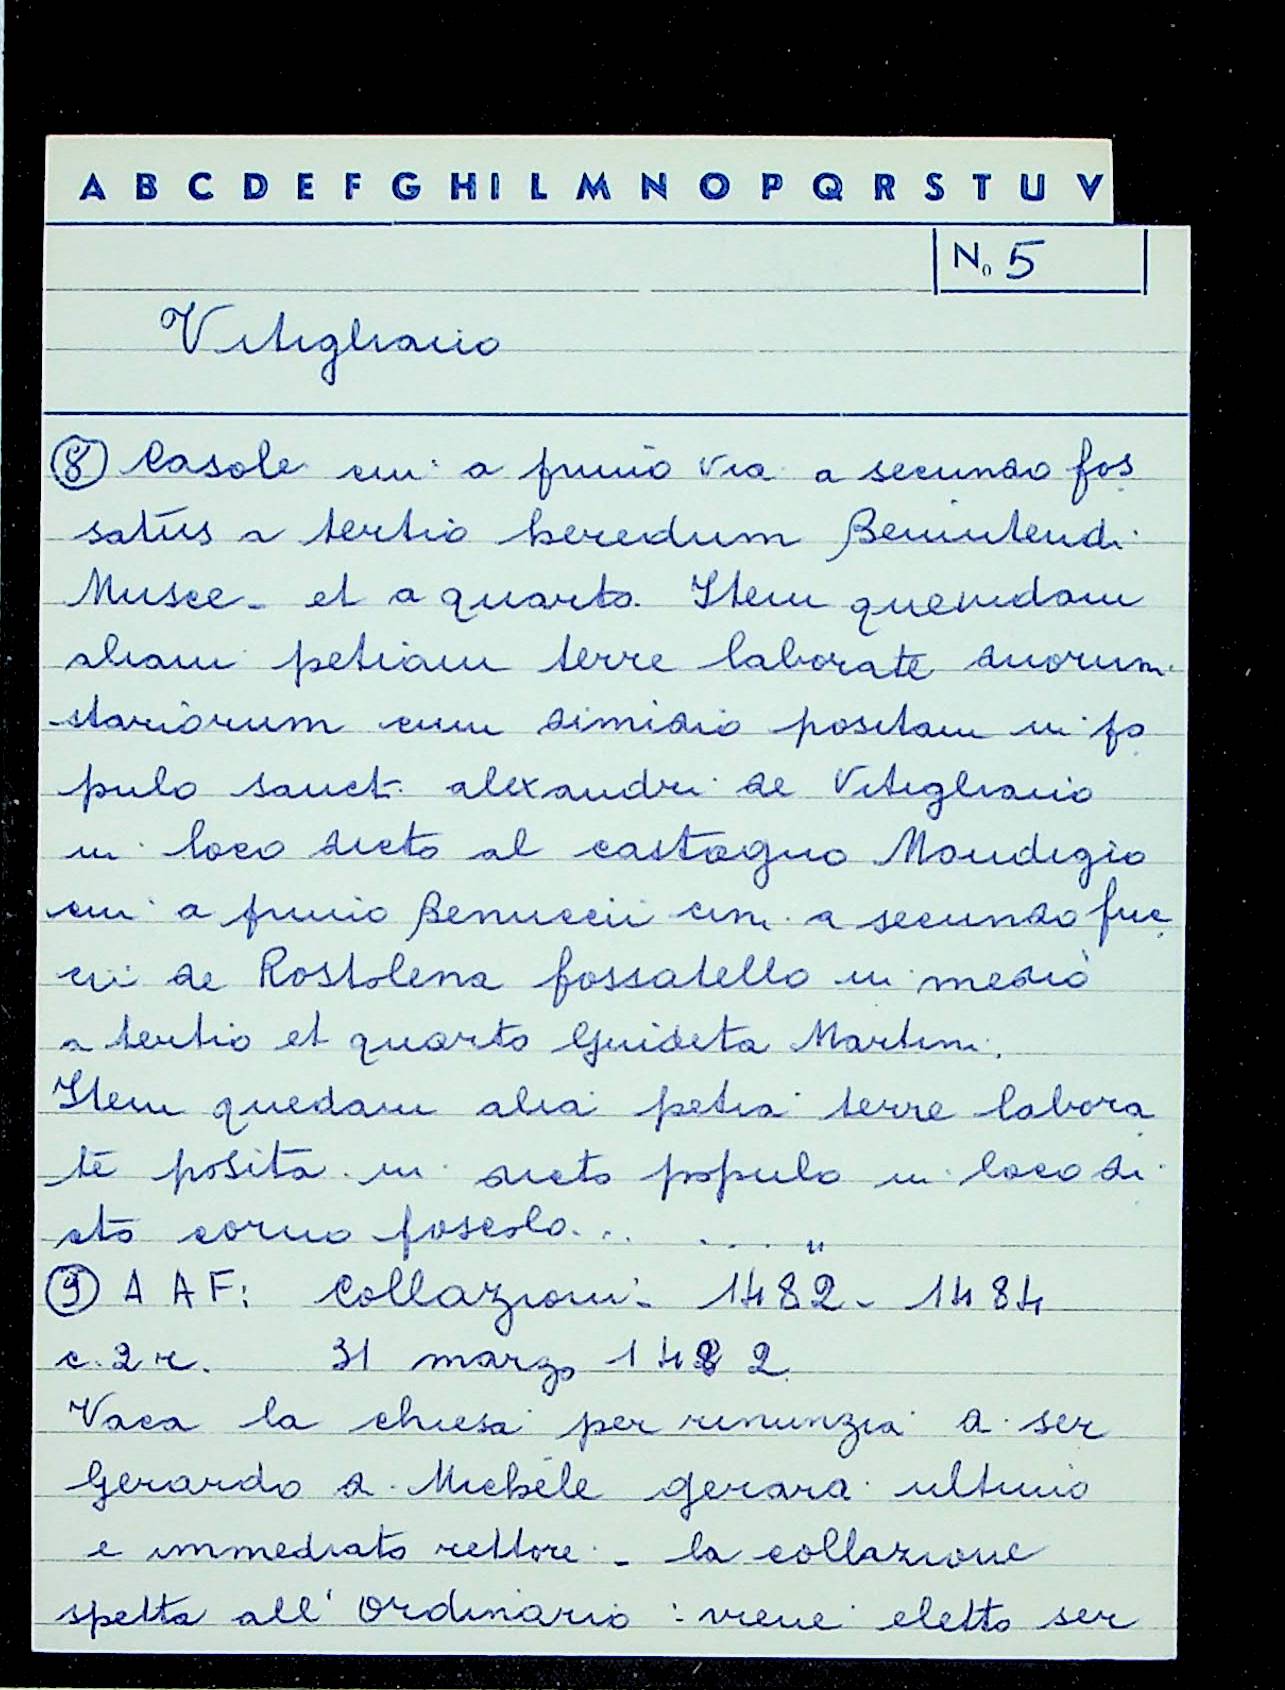 A B C D E F G H I L M N O P Q R S T U V
No 5
Vitigliano
8 Casole cui a primo via a secundo fos
satus a tertio heredum Benintendi
Musce - et a quarto. Item quemdam
aliam petiam terre laborate duorum
stariorum cum dimidio positam in po
pulo sanct. alexandri de Vitigliano
in loco dicto al castagno Mondigio
cui a primo Benuccii a secundo fuc
ci de Rostolena fossatello in medio
a tertio et quarto Guideta Martini.
Item quedam alia petia terre labora
te posita in dicto populo in loco di
cto corno foscolo... .... "
9 A A F: Collazioni - 1482 - 1484
c. 2 r. 31 marzo 1482
Vaca la chiesa per rinunzia d. ser
Gerardo d. Michele gerard. ultimo
e immediato rettore - la collazione
spetta all' Ordinario : viene eletto ser